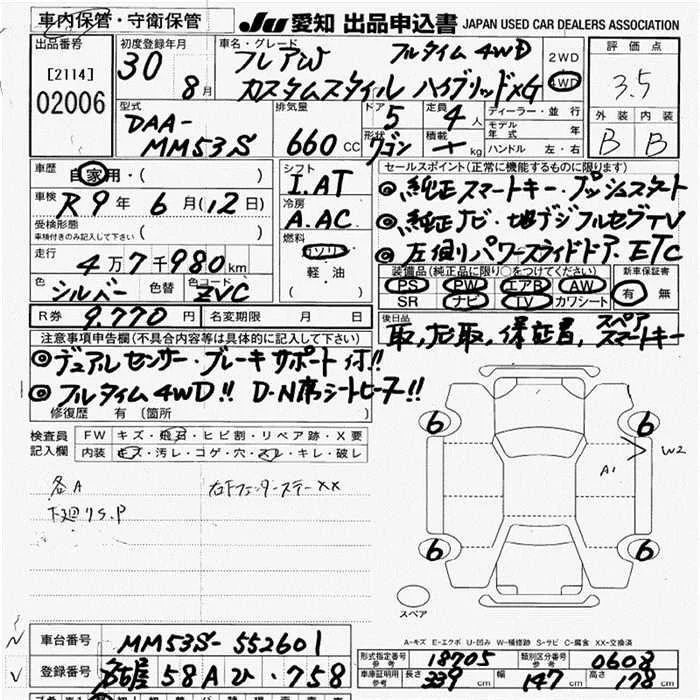 車内保管・守衛保管
JU 愛知 出品申込書 JAPAN USED CAR DEALERS ASSOCIATION
出品番号
[2114]
02006
初度登録年月
30
8月
車名・グレード
フレアW フルタイム4WD
カスタムスタイル ハイブリッドXG
2WD
4WD
評価点
3.5
外装 内装
B B
型式
DAA-
MM53S
排気量
660 CC
ドア
5
形状
ワゴン
定員
4人
積載
kg
ディーラー・並行
モデル年式 年
ハンドル 左・右
車歴
自家用・( )
車検
R9年 6月(12日)
受検形態
車検付きのみ記入して下さい ( )
走行
4万7千980km
色
シルバー
色替
色コード
ZVC
シフト
I.AT
冷房
A.AC
燃料
ガソリン
軽・油
( )
セールスポイント(正常に機能するものに限ります)
◎純正スマートキー・プッシュスタート
◎純正ナビ・地デジフルセグTV
◎左側パワースライドドア・ETC
装備品(純正品に限り○をつけてください)
PS PW エアB AW
SR ナビ TV カワシート
新車保証書
有 無
R券 9.770円 名変期限 月 日
後日品
取, ナビ取, 保証書, スペア
スマートキー
注意事項申告欄(不具合内容等は具体的に記入して下さい)
◎デュアルセンサー・ブレーキサポート付!!
◎フルタイム4WD!! D・N席シートヒーター!!
修復歴 有 (箇所
検査員
記入欄
FW キズ・飛石・ヒビ割・リペア跡・X要
内装 キズ・汚レ・コゲ・穴・スレ・キレ・破レ
各A
下廻りS.P
右Fフェンダーステー××
6 6
A1
W2
6 6
スペア
A-キズ E-エクボ U-凹み W-補修跡 S-サビ C-腐食 XX-交換済
車台番号 MM53S-552601
登録番号 名古屋 58A ひ・758
型式指定番号
参考
18705
類別区分番号
参考
0608
車庫証明用
参考
長さ 339 cm 幅 147 cm 高さ 178 cm